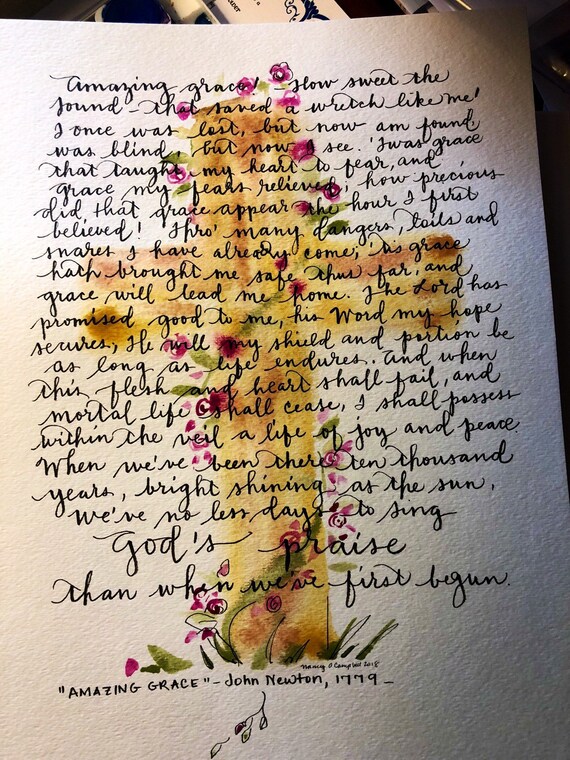 Amazing grace! - How sweet the
sound - that saved a wretch like me!
I once was lost, but now am found,
was blind, but now I see. 'Twas grace
that taught my heart to fear, and
grace my fears relieved; how precious
did that grace appear the hour I first
believed! Thro' many dangers, toils and
snares I have already come; 'tis grace
hath brought me safe thus far, and
grace will lead me home. The Lord has
promised good to me, his Word my hope
secures; He will my shield and portion be
as long as life endures. And when
this flesh and heart shall fail, and
mortal life shall cease, I shall possess
within the veil a life of joy and peace
When we've been there ten thousand
years, bright shining as the sun,
we've no less days to sing
God's praise
than when we've first begun.
Nancy O Campbell 2018
"AMAZING GRACE" - John Newton, 1779 -